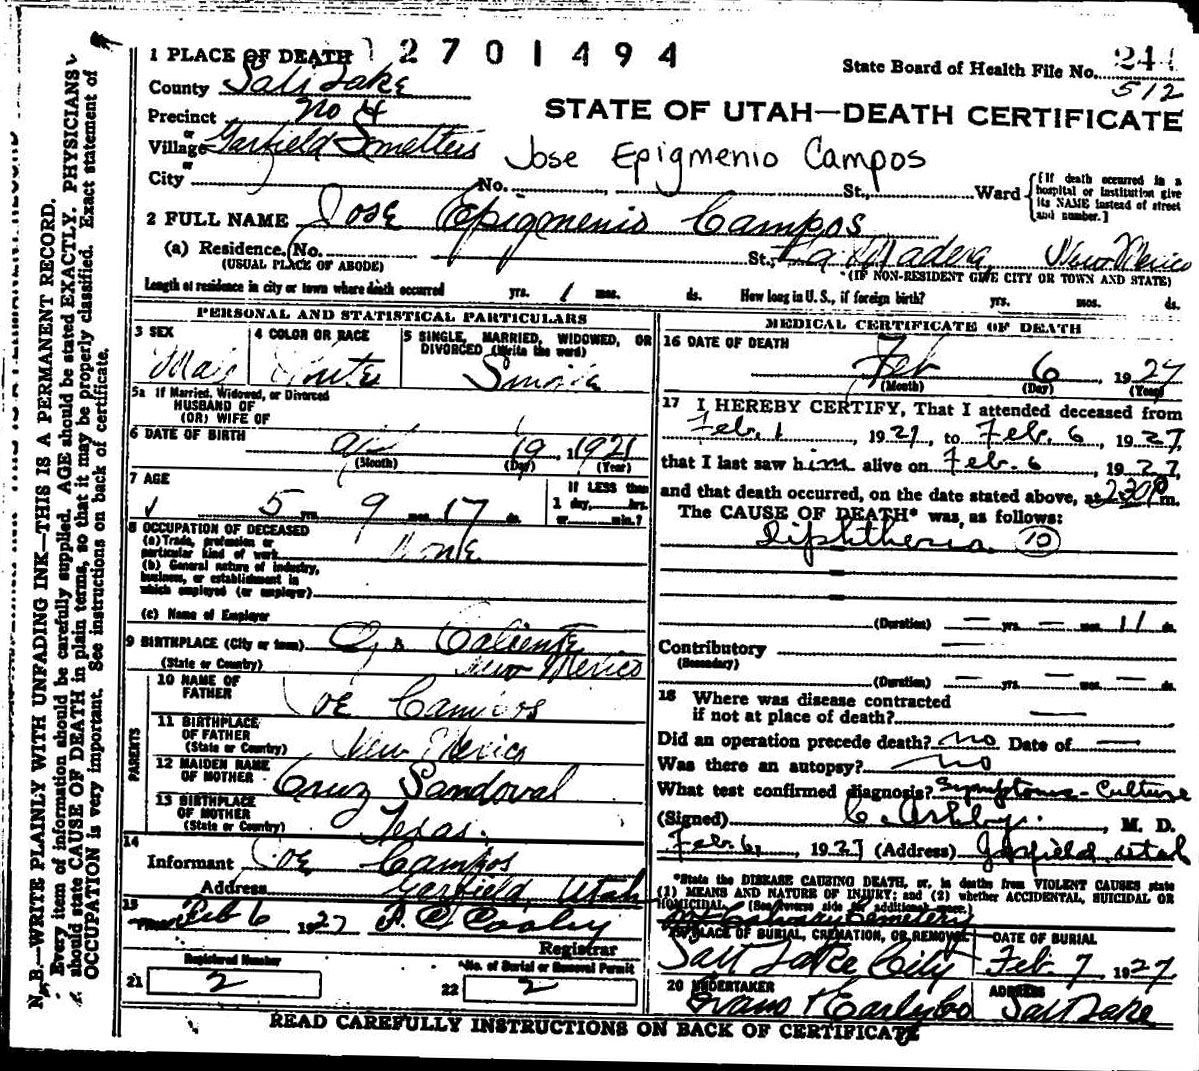 1 PLACE OF DEATH 2701494
State Board of Health File No. 244
512
County Salt Lake
STATE OF UTAH—DEATH CERTIFICATE
Precinct No 4
or
Village Garfield Smelters
Jose Epigmenio Campos
or
City No. St., Ward
[If death occurred in a
hospital or institution give
its NAME instead of street
and number.]
2 FULL NAME Jose Epigmenio Campos
(a) Residence, No. St., La Madera, New Mexico
(USUAL PLACE OF ABODE) (IF NON-RESIDENT GIVE CITY OR TOWN AND STATE)
Length of residence in city or town where death occurred yrs. 1 mos. ds. How long in U. S., if foreign birth? yrs. mos. ds.
PERSONAL AND STATISTICAL PARTICULARS
3 SEX 4 COLOR OR RACE 5 SINGLE, MARRIED, WIDOWED, OR
DIVORCED (Write the word)
Male White Single
5a If Married, Widowed, or Divorced
HUSBAND OF
(OR) WIFE OF
6 DATE OF BIRTH 19, 1921
(Month) (Day) (Year)
7 AGE If LESS than
5 yrs. 9 mos. 17 ds. 1 day, hrs.
or min.?
8 OCCUPATION OF DECEASED
(a) Trade, profession or
particular kind of work None
(b) General nature of industry,
business, or establishment in
which employed (or employer)
(c) Name of Employer
9 BIRTHPLACE (City or town) Ojo Caliente
(State or Country) New Mexico
PARENTS
10 NAME OF
FATHER Joe Campos
11 BIRTHPLACE
OF FATHER
(State or Country) New Mexico
12 MAIDEN NAME
OF MOTHER Cruz Sandoval
13 BIRTHPLACE
OF MOTHER
(State or Country) Texas.
14
Informant Joe Campos
Address Garfield, Utah
15
Filed Feb 6 1927
Registrar
Registered Number *No. of Burial or Removal Permit
21 2 22 2
MEDICAL CERTIFICATE OF DEATH
16 DATE OF DEATH
Feb 6, 1927
(Month) (Day) (Year)
17 I HEREBY CERTIFY, That I attended deceased from
Feb. 1, 1927, to Feb. 6, 1927,
that I last saw him alive on Feb. 6, 1927,
and that death occurred, on the date stated above, at 2:30 P m.
The CAUSE OF DEATH* was, as follows:
Diphtheria 10
(Duration) — yrs. — mos. 11 ds.
Contributory —
(Secondary)
(Duration) — yrs. — mos. — ds.
18 Where was disease contracted
if not at place of death? —
Did an operation precede death? No Date of —
Was there an autopsy? No
What test confirmed diagnosis? Symptoms - Culture
(Signed) C. Ashby, M. D.
Feb. 6, 1927 (Address) Garfield, Utah
*State the DISEASE CAUSING DEATH, or, in deaths from VIOLENT CAUSES state
(1) MEANS AND NATURE OF INJURY; and (2) whether ACCIDENTAL, SUICIDAL OR
HOMICIDAL. (See reverse side for additional space.)
19 PLACE OF BURIAL, CREMATION, OR REMOVAL DATE OF BURIAL
Salt Lake City Feb. 7, 1927
20 UNDERTAKER ADDRESS
Salt Lake
READ CAREFULLY INSTRUCTIONS ON BACK OF CERTIFICATE
N. B.—WRITE PLAINLY WITH UNFADING INK—THIS IS A PERMANENT RECORD.
Every item of information should be carefully supplied. AGE should be stated EXACTLY. PHYSICIANS
should state CAUSE OF DEATH in plain terms, so that it may be properly classified. Exact statement of
OCCUPATION is very important. See instructions on back of certificate.